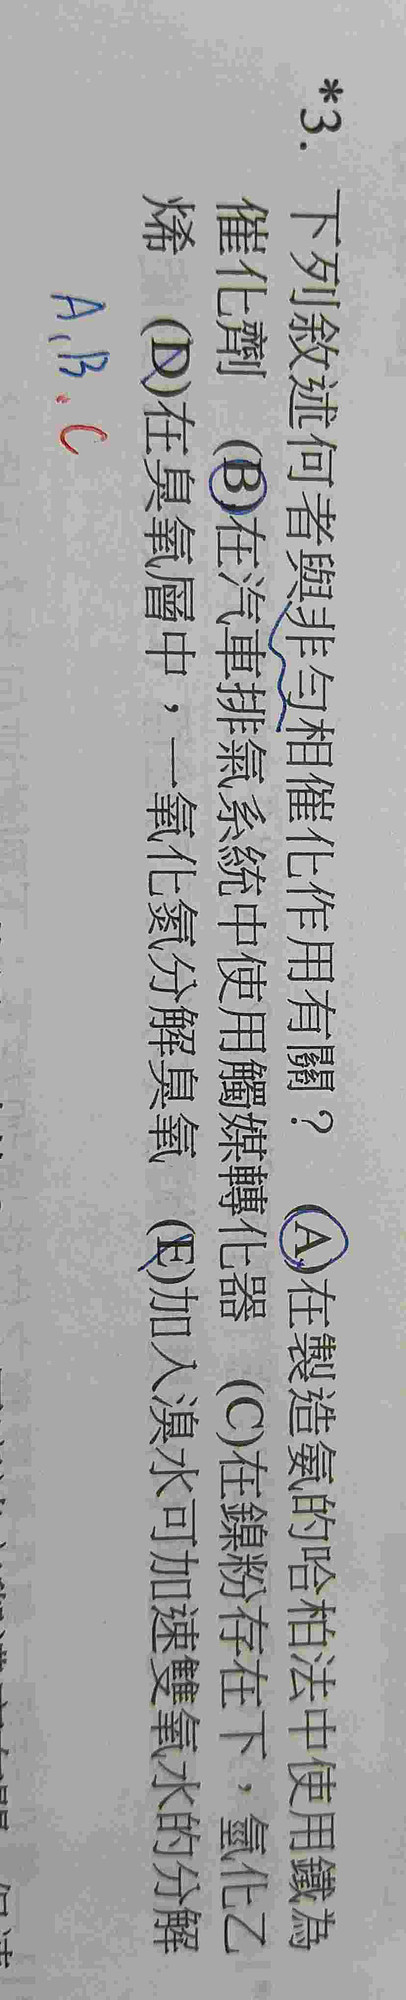 *3. 下列敘述何者與非勻相催化作用有關？ (A)在製造氨的哈柏法中使用鐵為
催化劑 (B)在汽車排氣系統中使用觸媒轉化器 (C)在鎳粉存在下，氫化乙
烯 (D)在臭氧層中，一氧化氮分解臭氧 (E)加入溴水可加速雙氧水的分解
A、B、C